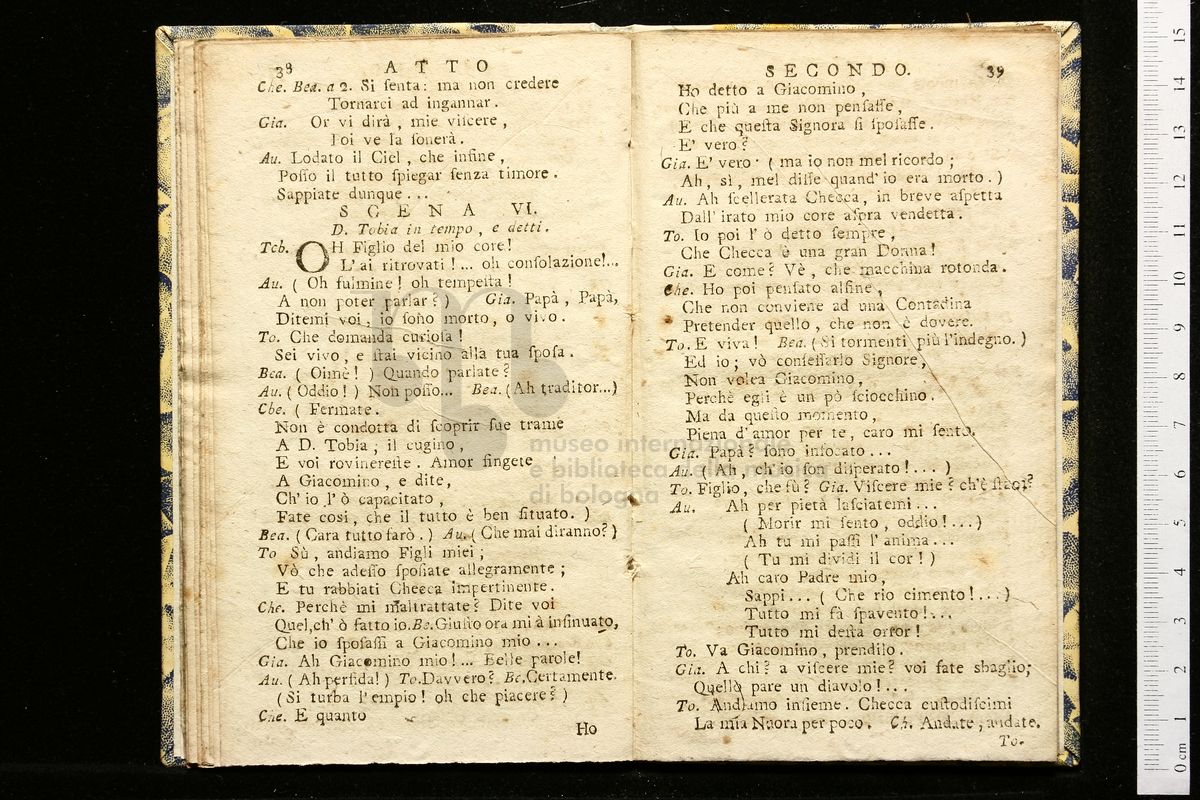 38 ATTO
Che. Bea. a 2. Si ſenta: ma non credere
Tornarci ad ingannar.
Gia. Or vi dirà, mie viſcere,
Poi ve la ſonerà.
Au. Lodato il Ciel, che infine,
Poſſo il tutto ſpiegar ſenza timore.
Sappiate dunque...
SCENA VI.
D. Tobia in tempo, e detti.
Tob. OH Figlio del mio core!
L'ai ritrovata.... oh conſolazione!...
Au. ( Oh fulmine! oh tempeſta!
A non poter parlar? ) Gia. Papà, Papà,
Ditemi voi, io ſono morto, o vivo.
To. Che domanda curioſa!
Sei vivo, e ſtai vicino alla tua ſpoſa.
Bea. ( Oimè! ) Quando parlate?
Au. ( Oddio! ) Non poſſo... Bea. (Ah traditor...)
Che. ( Fermate.
Non è condotta di ſcoprir ſue trame
A D. Tobia; il cugino,
E voi rovinereſte. Amor fingete
A Giacomino, e dite,
Ch'io l'ò capacitato,
Fate così, che il tutto è ben ſituato. )
Bea. ( Cara tutto farò. ) Au. ( Che mai diranno? )
To Sù, andiamo Figli miei;
Vò che adeſſo ſpoſiate allegramente;
E tu rabbiati Checca impertinente.
Che. Perchè mi maltrattate? Dite voi
Quel, ch'ò fatto io. Be. Giuſto ora mi à inſinuato,
Che io ſpoſaſſi a Giacomino mio...
Gia. Ah Giacomino mio!... Belle parole!
Au. ( Ah perfida! ) To. Davvero? Be. Certamente.
(Si turba l'empio! oh che piacere? )
Che. E quanto
Ho
SECONDO. 39
Ho detto a Giacomino,
Che più a me non penſaſſe,
E che queſta Signora ſi ſpoſaſſe.
E' vero?
Gia. E' vero ( ma io non mel ricordo;
Ah, sì, mel diſſe quand'io era morto. )
Au. Ah ſcellerata Checca, in breve aſpetta
Dall'irato mio core aſpra vendetta.
To. Io poi l'ò detto ſempre,
Che Checca è una gran Donna!
Gia. E come? Vè, che macchina rotonda.
Che. Ho poi penſato alfine,
Che non conviene ad una Contadina
Pretender quello, che non è dovere.
To. E viva! Bea. ( Si tormenti più l'indegno. )
Ed io; vò confeſſarlo Signore,
Non volea Giacomino,
Perchè egli è un pò ſciocchino.
Ma da queſto momento,
Piena d'amor per te, caro mi ſento.
Gia. Papà? ſono infocato...
Au. ( Ah, ch'io ſon diſperato!... )
To. Figlio, che fù? Gia. Viſcere mie? ch'è ſtato?
Au. Ah per pietà laſciatemi...
( Morir mi ſento, oddio!...)
Ah tu mi paſſi l'anima...
( Tu mi dividi il cor! )
Ah caro Padre mio,
Sappi... ( Che rio cimento!... )
Tutto mi fà ſpavento!...
Tutto mi deſta orror!
To. Va Giacomino, prendilo.
Gia. A chi? a viſcere mie? voi fate sbaglio;
Quello pare un diavolo!...
To. Andiamo inſieme. Checca cuſtodiſcimi
La mia Nuora per poco. Ch. Andate, andate.
To.
museo internazionale
e biblioteca della musica
di bologna
0 cm 1 2 3 4 5 6 7 8 9 10 11 12 13 14 15